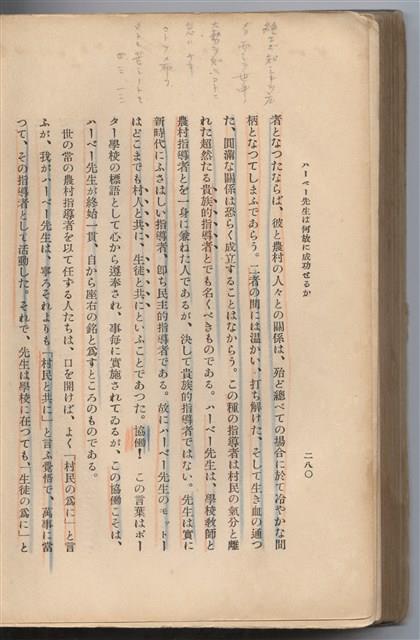 ハーベー先生は何故に成功せるか
二八〇
者となつたならば、彼と農村の人々との關係は、殆ど總べての場合に於て冷やかな間
柄となつてしまふであらう。二者の間には温かい、打ち解けた、そして生き血の通つ
た、圓滿な關係は恐らく成立することはなからう。この種の指導者は村民の氣分と離
れた超然たる貴族的指導者とでも名くべきものである。ハーベー先生は、學校教師と
農村指導者とを一身に兼ねた人であるが、決して貴族的指導者ではない。先生は實に
新時代にふさはしい指導者、卽ち民主的指導者である。故にハーベー先生のモットー
はどこまでも村人と共に、生徒と共にといふことであつた。協働！　この言葉はポー
ター學校の標語として心から遵奉され、事毎に實施されてゐるが、この協働こそは、
ハーベー先生が終始一貫、自から座右の銘と爲すところのものである。
世の常の農村指導者を以て任する人たちは、口を開けば、よく「村民の爲に」と言
ふが、我がハーベー先生は、寧ろそれよりも「村民と共に」と言ふ覺悟で、萬事に當
つて、その指導者として活動した。それで、先生は學校に在つても、「生徒の爲に」と